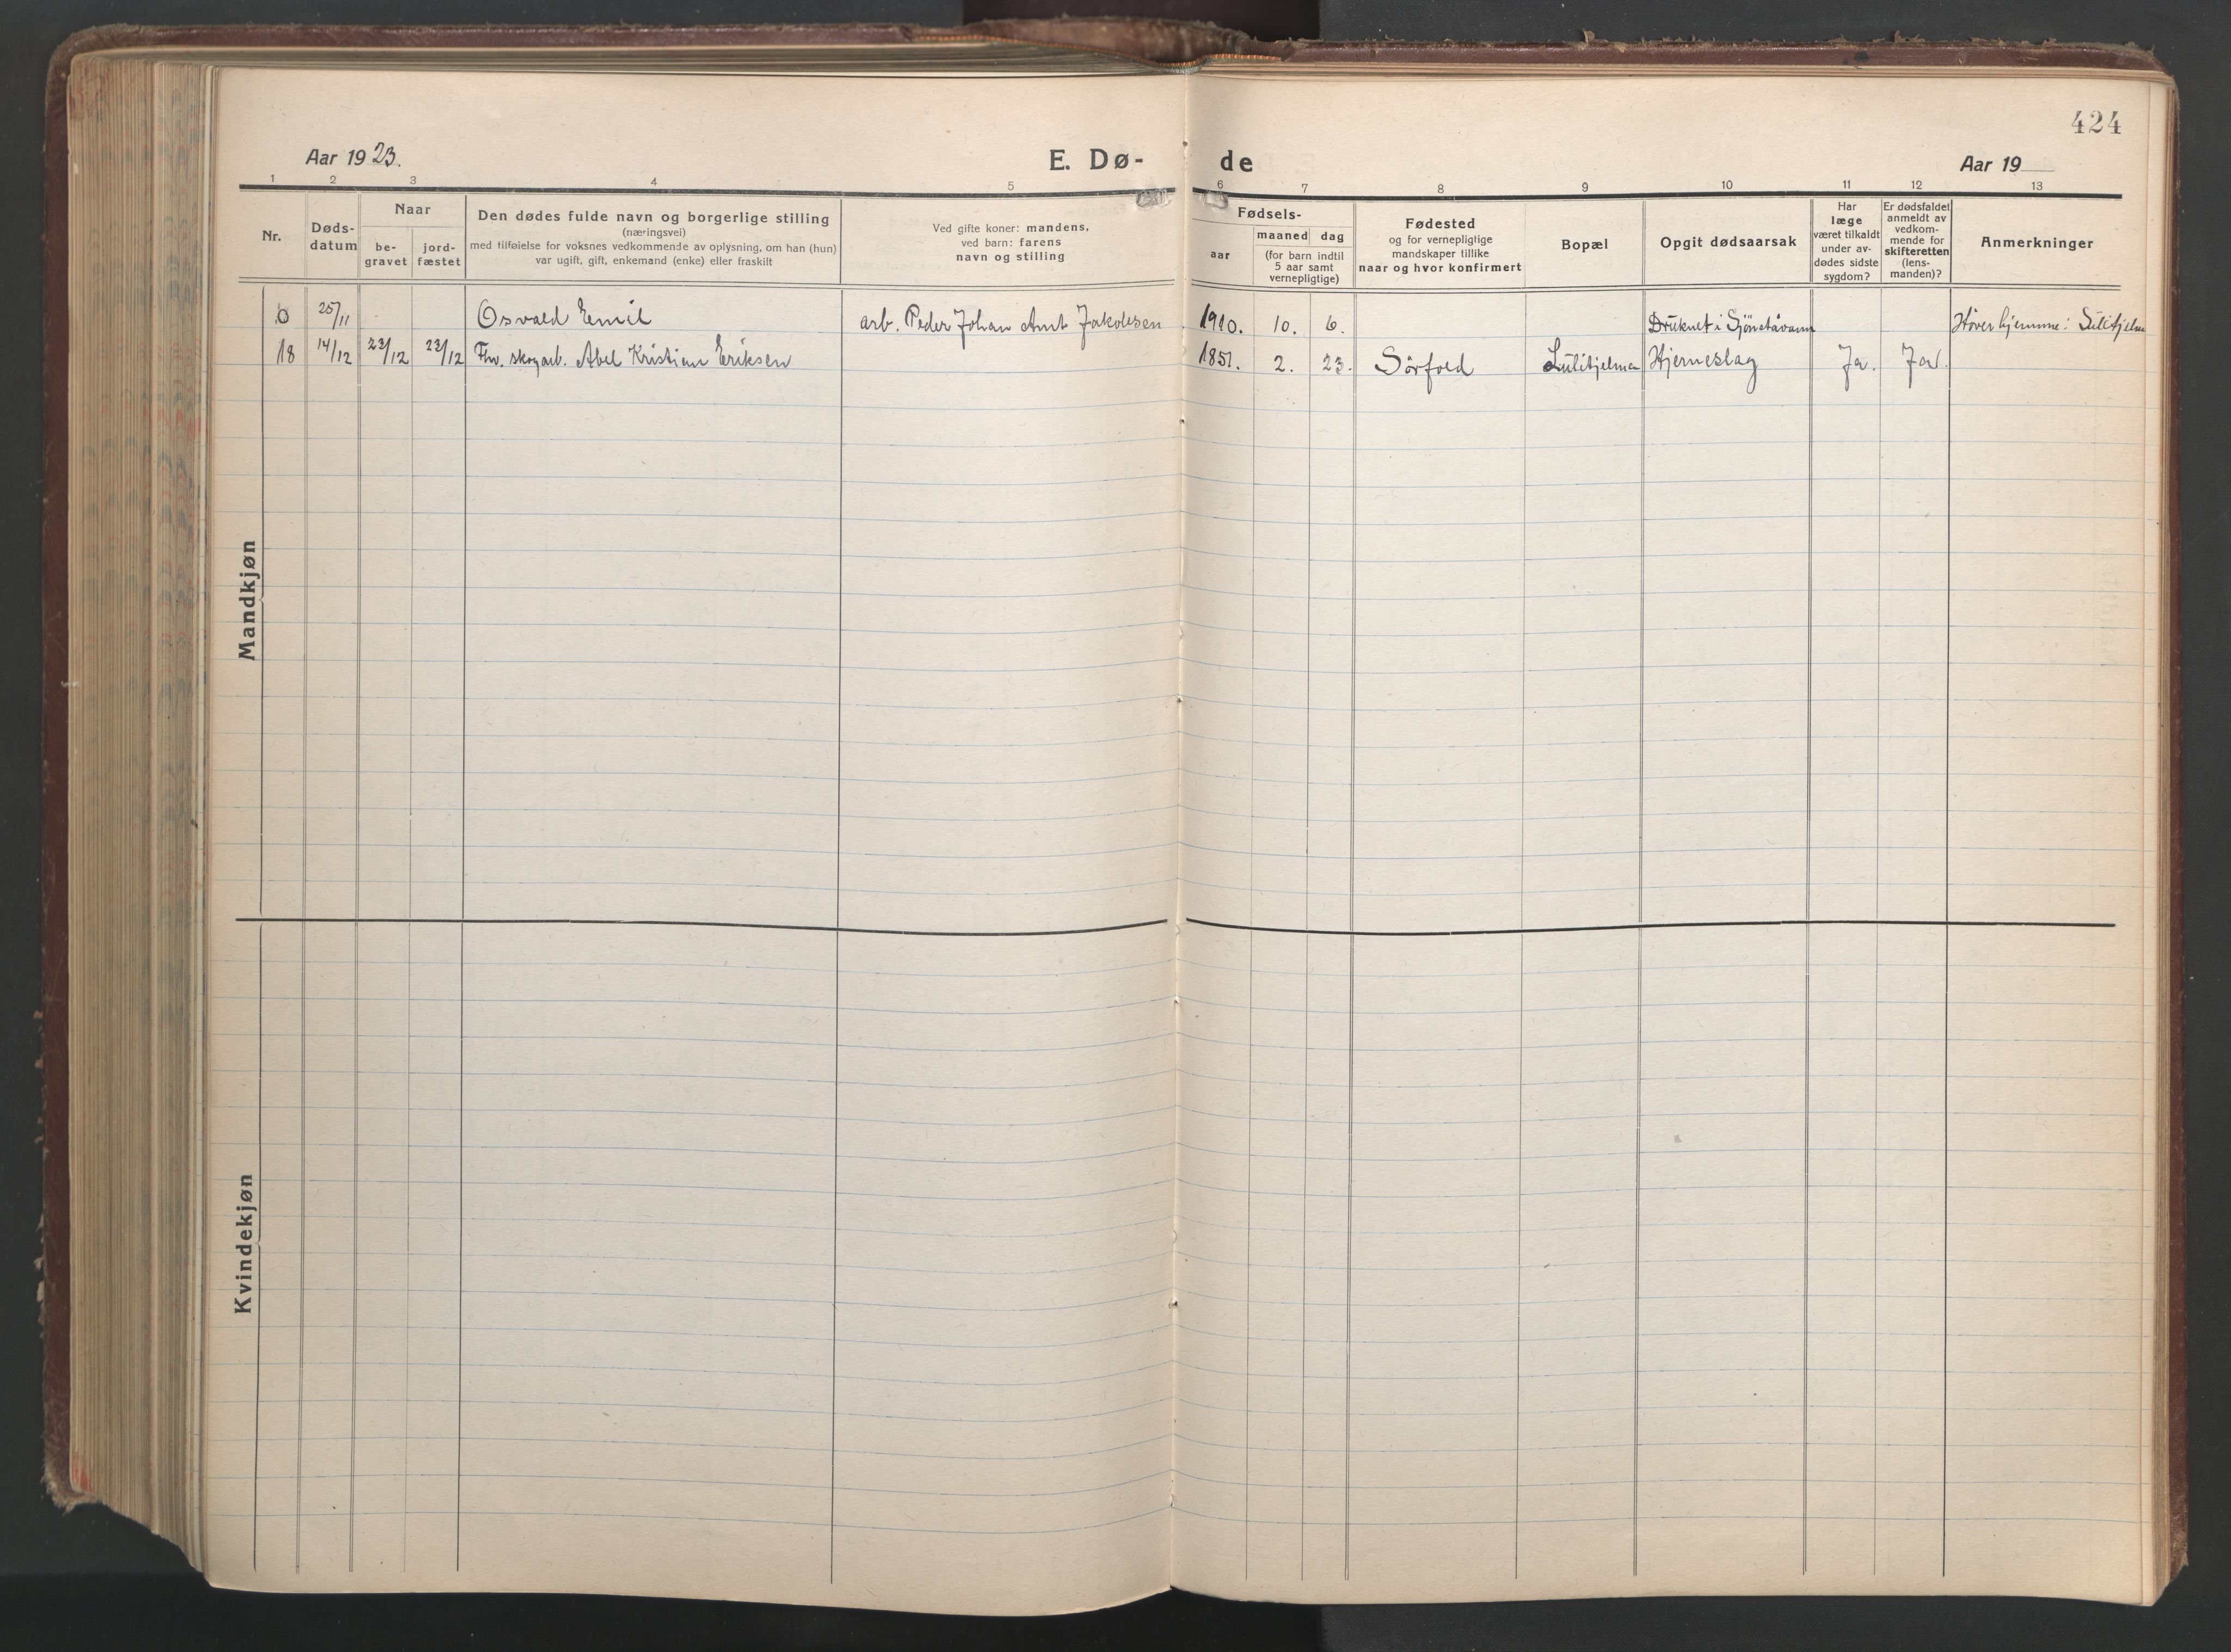 424
Aar 1923.
E. Dø-
de
Aar 19
1 2 3 4 5 6 7 8 9 10 11 12 13
Nr.
Døds-
datum
Naar
be-
gravet
jord-
fæstet
Den dødes fulde navn og borgerlige stilling
(næringsvei)
med tilføielse for voksnes vedkommende av oplysning, om han (hun)
var ugift, gift, enkemand (enke) eller fraskilt
Ved gifte koner: mandens,
ved barn: farens
navn og stilling
Fødsels-
aar
maaned dag
(for barn indtil
5 aar samt
vernepligtige)
Fødested
og for vernepligtige
mandskaper tillike
naar og hvor konfirmert
Bopæl
Opgit dødsaarsak
Har
læge
været tilkaldt
under av-
dødes sidste
sygdom?
Er dødsfaldet
anmeldt av
vedkom-
mende for
skifteretten
(lens-
manden)?
Anmerkninger
0 25/11 Osvald Emil arb. Peder Johan Arnt Jakobsen 1910. 10. 6. Druknet i Sjønståvann Hører hjemme i Sulitjelma
18 14/12 23/12 23/12 Fhv. skogarb. Abel Kristian Eriksen 1851. 2. 23. Sörfold Sulitjelma Hjerneslag Ja. Ja.
Mandkjøn
Kvindekjøn